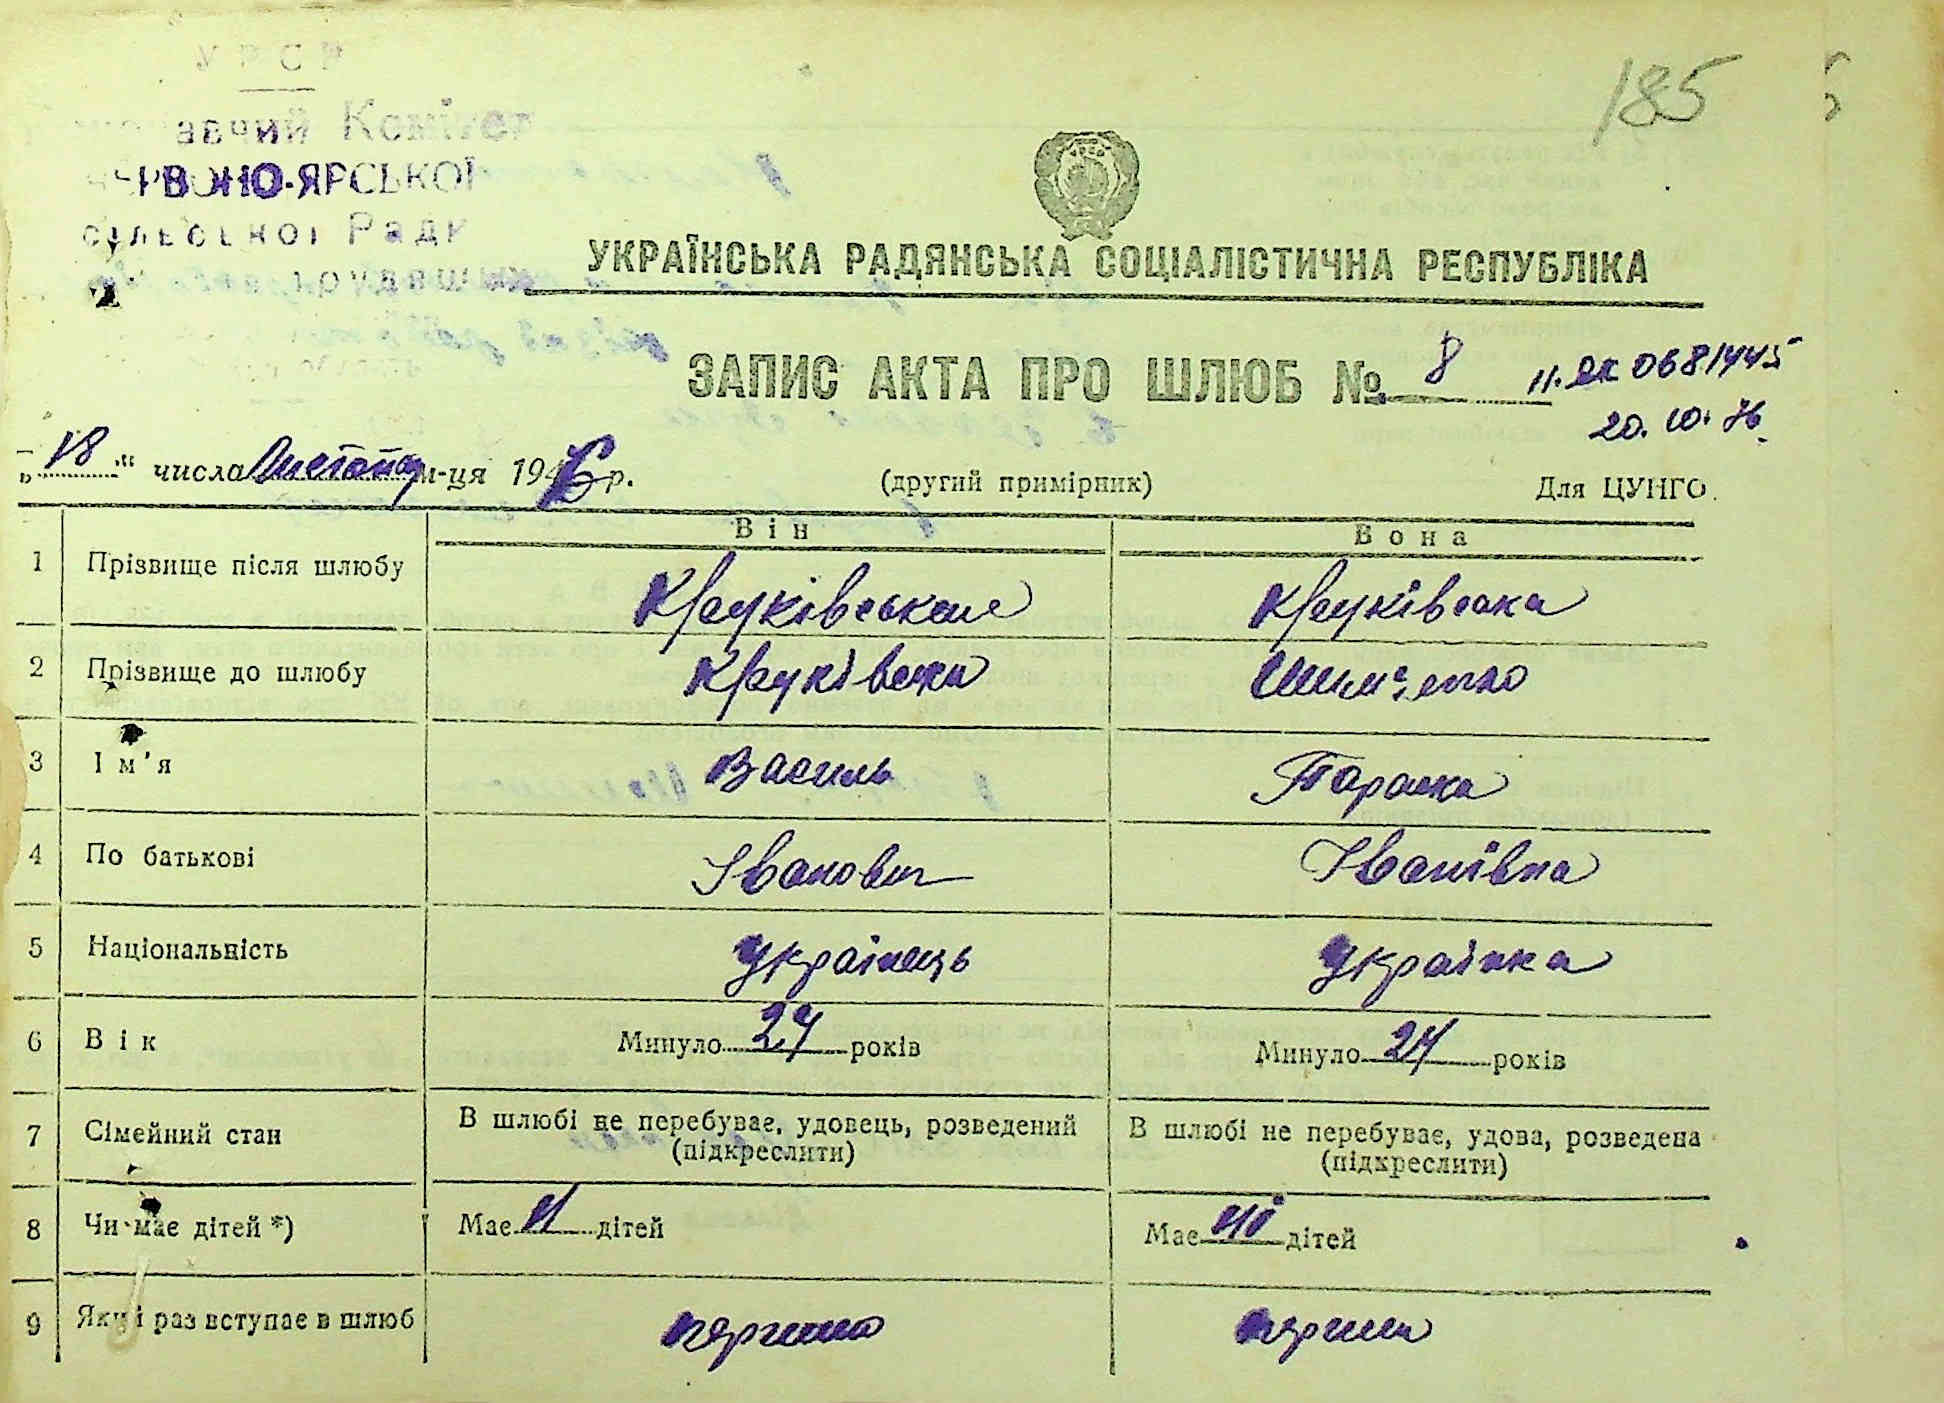 УРСР
185
авчий Комітет
ЧЕРВОНО-ЯРСЬКОЇ
сільської Ради
трудящих
УРСР
УКРАЇНСЬКА РАДЯНСЬКА СОЦІАЛІСТИЧНА РЕСПУБЛІКА
ЗАПИС АКТА ПРО ШЛЮБ № 8
0681445
20. 10. 76.
„ 18 “ числа Листопад м-ця 1946 р.
(другий примірник)
Для ЦУНГО.
Він Вона
1 Прізвище після шлюбу Круківська
2 Прізвище до шлюбу
3 Ім'я Василь Параска
4 По батькові Іванович Іванівна
5 Національність українець українка
6 Вік Минуло 27 років Минуло 24 років
7 Сімейний стан В шлюбі не перебуває, удовець, розведений (підкреслити) В шлюбі не перебуває, удова, розведена (підкреслити)
8 Чи має дітей *) Має дітей Має дітей
9 Який раз вступає в шлюб